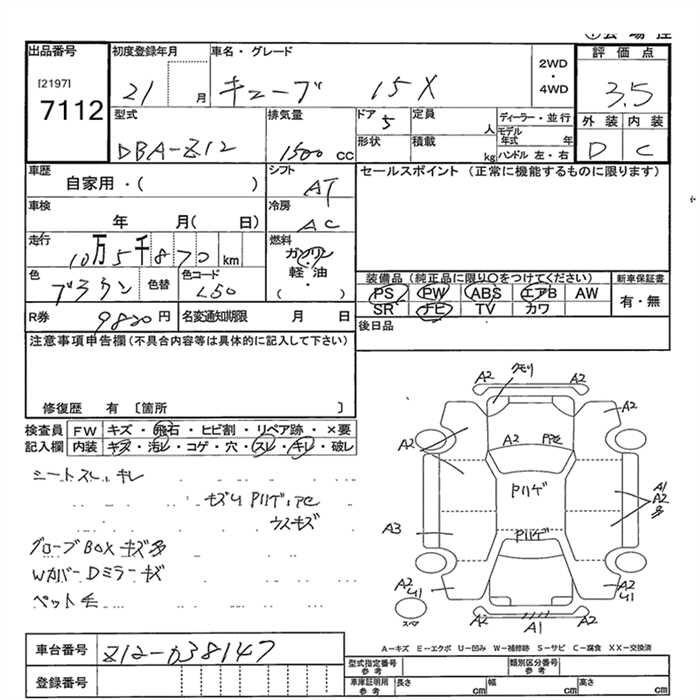 出品番号
[2197]
7112
初度登録年月
21 月
車名・グレード
キューブ 15X
2WD
・
4WD
評価点
3.5
外装 内装
D C
型式
DBA-Z12
排気量
1500 CC
ドア 5
定員
人
形状
積載
kg
ディーラー・並行
モデル年式 年
ハンドル 左・右
車歴
自家用・( )
シフト
AT
セールスポイント (正常に機能するものに限ります)
車検
年 月( 日)
冷房
AC
走行
10万5千870 km
燃料
ガソリン
・
軽油
( )
色
ブラウン
色替
色コード
L50
装備品 (純正品に限り○をつけてください)
PS PW ABS エアB AW
SR ナビ TV カワ
新車保証書
有・無
R券 9820円
名変通知期限 月 日
後日品
注意事項申告欄(不具合内容等は具体的に記入して下さい)
修復歴 有 〔箇所 〕
検査員記入欄
FW キズ・飛石・ヒビ割・リペア跡・×要
内装 キズ・汚レ・コゲ・穴・スレ・キレ・破レ
シートスレ、キレ
ウスキズ
グローブBOXキズ多
Wカバー Dミラーキズ
ペット毛
クモリ
A2
A2
A2
A2
A2
Pハゲ
A1
A2
多
A3
Pハゲ
A2
U1
A2
U1
スペア
A2
A1
A2
車台番号 Z12-038147
登録番号
A-キズ E-エクボ U-凹み W-補修跡 S-サビ C-腐食 XX-交換済
型式指定番号
参考
類別区分番号
参考
車庫証明用
参考
長さ cm 幅 cm 高さ cm